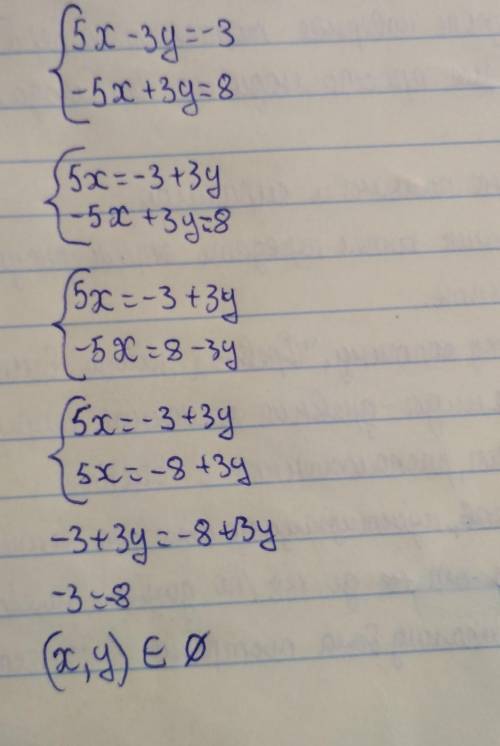 5x - 3y = -3
-5x + 3y = 8
5x = -3 + 3y
-5x + 3y = 8
5x = -3 + 3y
-5x = 8 - 3y
5x = -3 + 3y
5x = -8 + 3y
-3 + 3y = -8 + 3y
-3 = -8
(x, y) ∈ ∅